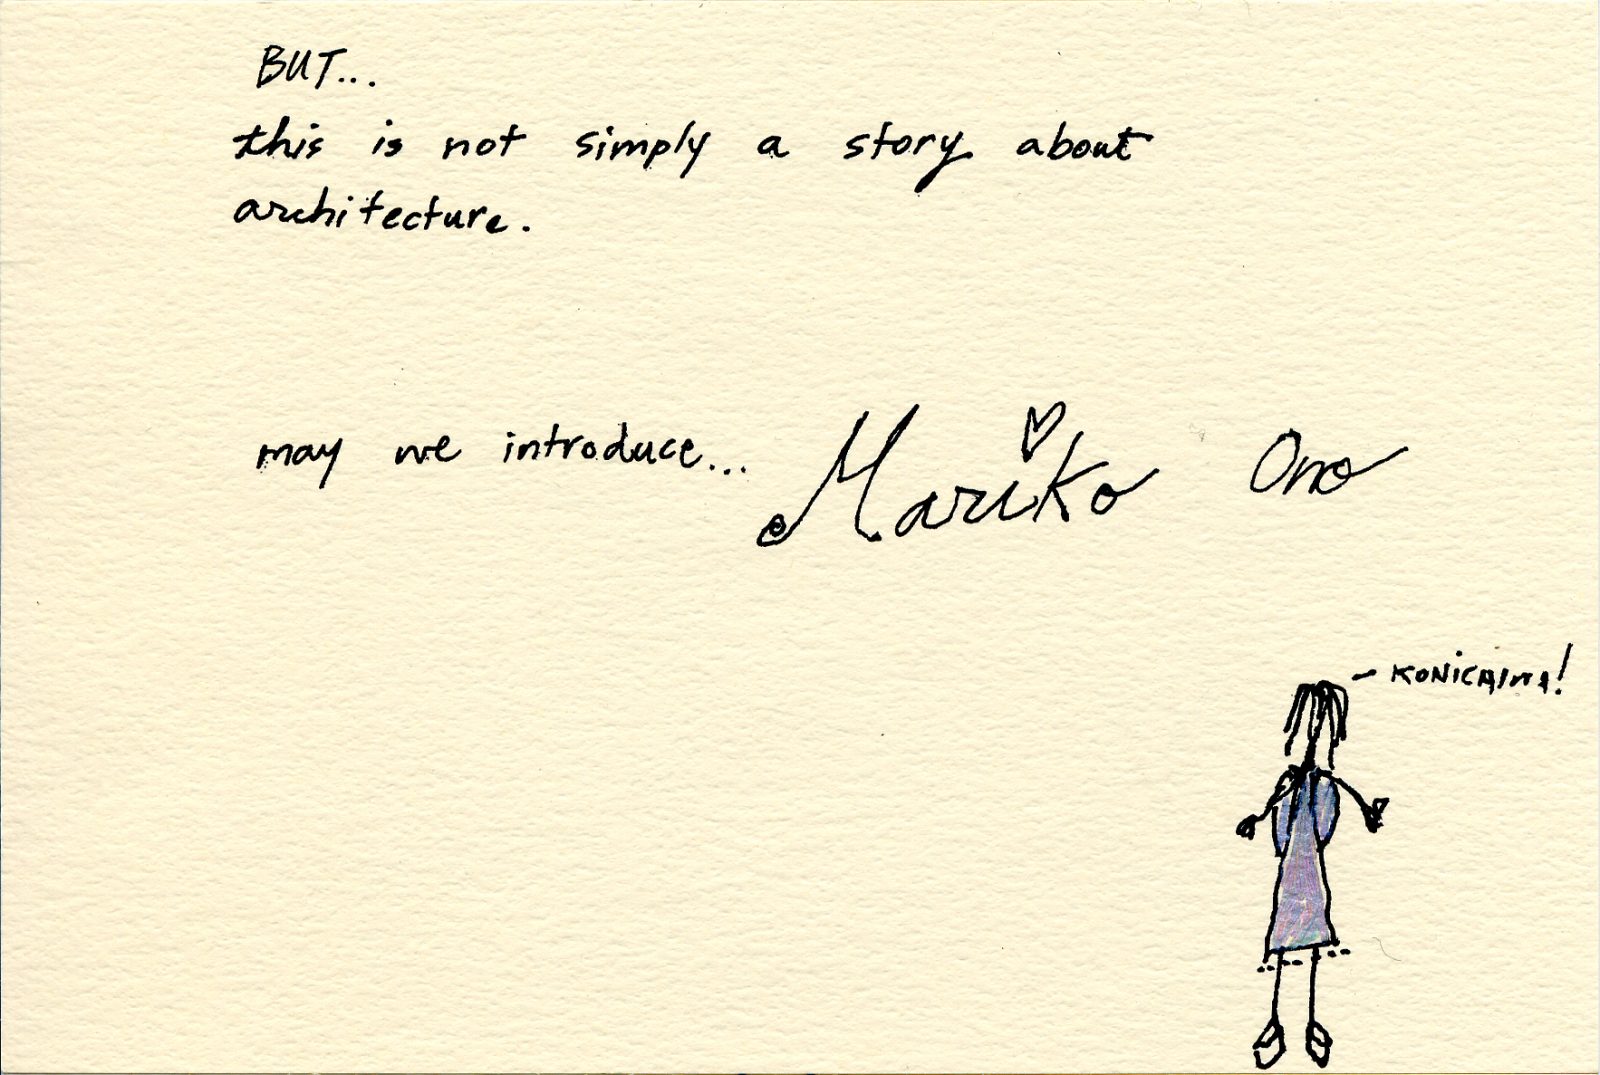 BUT...
this is not simply a story about
architecture.
may we introduce... Mariko Ono
- KONICAIWA!